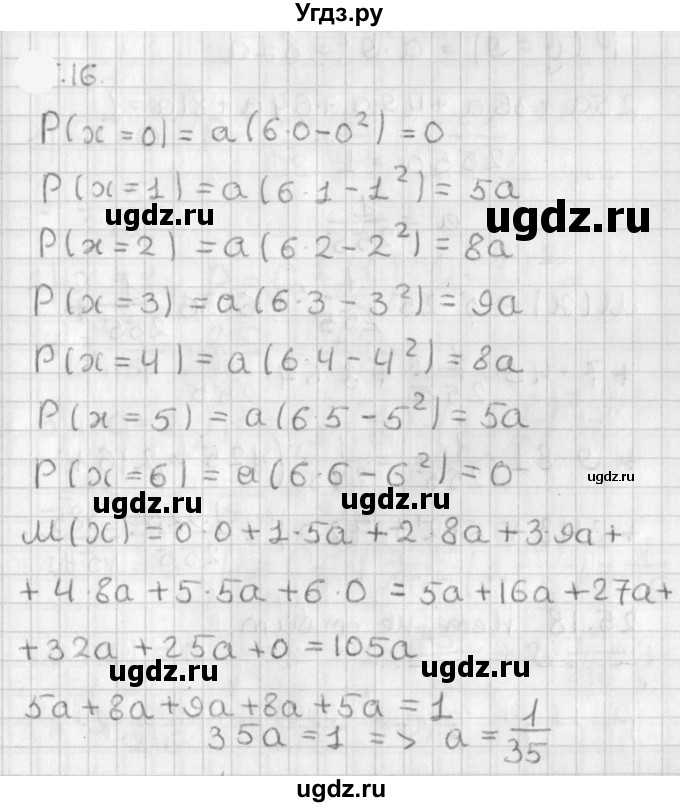 Угдз.ру
.16.
P(x=0)=a(6·0-0²)=0
P(x=1)=a(6·1-1²)=5a
ugdz.ru
ugdz.ru
P(x=2)=a(6·2-2²)=8a
P(x=3)=a(6·3-3²)=9a
P(x=4)=a(6·4-4²)=8a
P(x=5)=a(6·5-5²)=5a
P(x=6)=a(6·6-6²)=0
ugdz.ru
ugdz.ru
ugdz.ru
M(x)=0·0+1·5a+2·8a+3·9a+
+4·8a+5·5a+6·0=5a+16a+27a+
+32a+25a+0=105a
ugdz.ru
ugdz.ru
5a+8a+9a+8a+5a=1
35a=1 => a=1/35
ugdz.ru